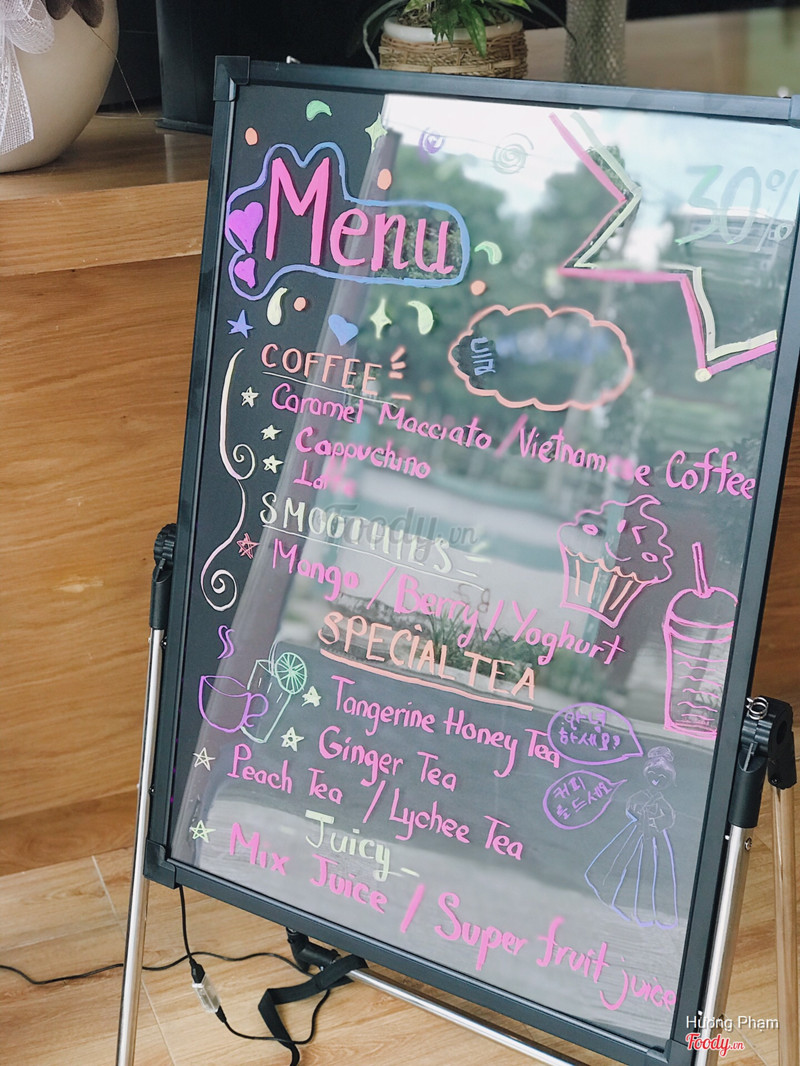 30%
Menu
COFFEE
Caramel Macciato / Vietnamese Coffee
Cappuchino
SMOOTHIES
Mango / Berry / Yoghurt
SPECIAL TEA
Tangerine Honey Tea
Ginger Tea
Peach Tea / Lychee Tea
Juicy
Mix Juice / Super fruit juice
안녕
하세요?
커피
Foody.vn
Hương Phạm
Foody.vn